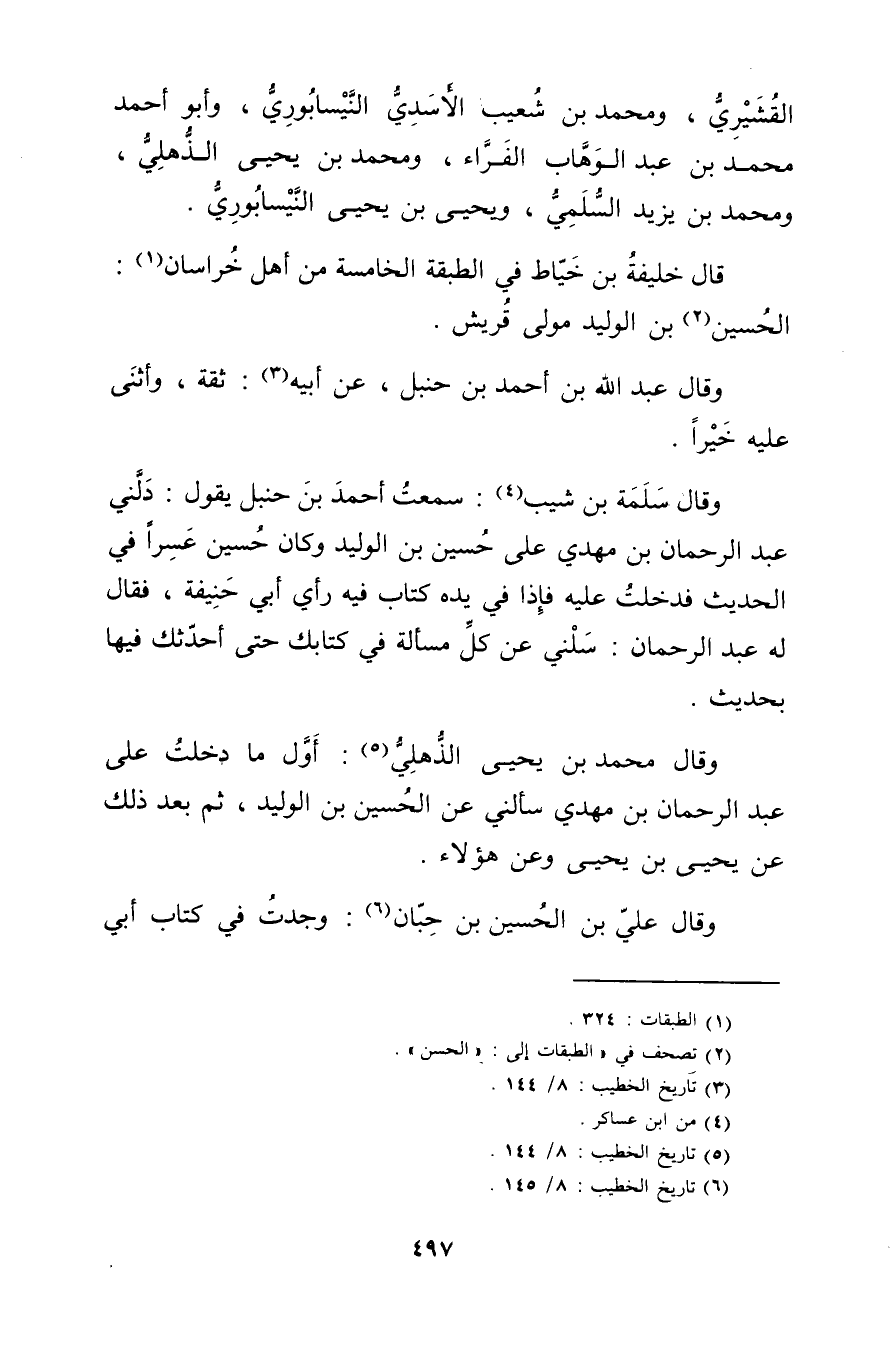 القُشَيْرِيُّ ، ومحمد بن شُعيب الأَسَدِيُّ النَّيْسابُورِيُّ ، وأبو أحمد
محمـد بن عبد الـوَهَّاب الفَـرَّاء ، ومحمد بن يحيـى الـذُّهلِيُّ ،
ومحمد بن يزيد السُّلَمِيُّ ، ويحيـى بن يحيـى النَّيْسابُورِيُّ .
قال خليفةُ بن خَيّاط في الطبقة الخامسة من أهل خُراسان(١) :
الحُسين(٢) بن الوليد مولى قُريش .
وقال عبد الله بن أحمد بن حنبل ، عن أبيه(٣) : ثقة ، وأثنَى
عليه خَيْراً .
وقال سَلَمَة بن شيب(٤) : سمعتُ أحمدَ بنَ حنبل يقول : دَلَّني
عبد الرحمان بن مهدي على حُسين بن الوليد وكان حُسين عَسِراً في
الحديث فدخلتُ عليه فإذا في يده كتاب فيه رأي أبي حَنِيفة ، فقال
له عبد الرحمان : سَلْني عن كلِّ مسألة في كتابك حتى أحدّثك فيها
بحديث .
وقال محمد بن يحيـى الذُّهلِيُّ(٥) : أَوَّل ما دخلتُ على
عبد الرحمان بن مهدي سألني عن الحُسين بن الوليد ، ثم بعد ذلك
عن يحيـى بن يحيـى وعن هؤلاء .
وقال عليّ بن الحُسين بن حِبّان(٦) : وجدتُ في كتاب أبي
(١) الطبقات : ٣٢٤ .
(٢) تصحف في « الطبقات إلى : « الحسن » .
(٣) تاريخ الخطيب : ٨/ ١٤٤ .
(٤) من ابن عساكر .
(٥) تاريخ الخطيب : ٨/ ١٤٤ .
(٦) تاريخ الخطيب : ٨/ ١٤٥ .
٤٩٧